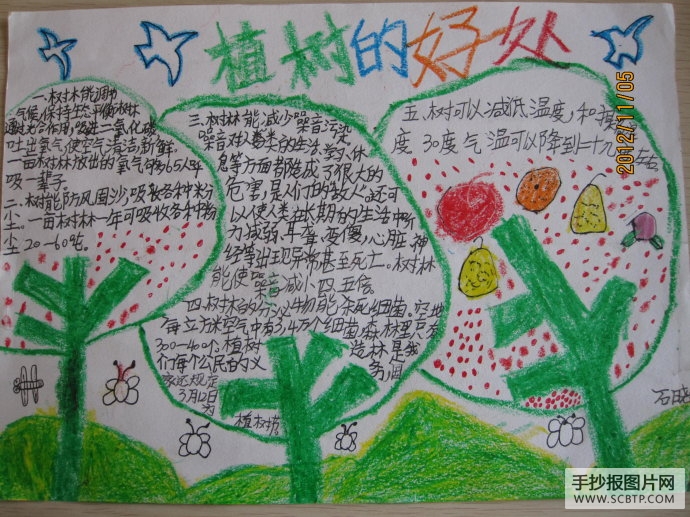 植树的好处
一.树林能调节
气候,保持生态平衡.树林
通过光合作用,吸进二氧化碳
吐出氧气,使空气清洁新鲜.
一亩树林放出的氧气够65人呼
吸一辈子.
二.树能防风固沙,吸收各种粉
尘.一亩树林一年可吸收各种粉
尘20-60吨.
三.树林能减少噪音污染.
噪音对人类的生活,学习,休
息等方面都造成了很大的
危害,是人们的"敌人".还可
以使人类在长期的生活中听
力减弱.耳聋.变傻,心脏,神
经等出现异常甚至死亡.树林
能使噪音减小四五倍
四.树木的分泌物能杀死细菌.空地
每立方米空气中有3.4万个细菌,森林里只有
300-400个.植树
造林是我
们每个公民的义
务,国
3月12日
为
植树节
五.树可以减低温度,和
度30度气温可以降到二十九
石
2012/11/05
手抄报图片网
WWW.SCBTP.COM